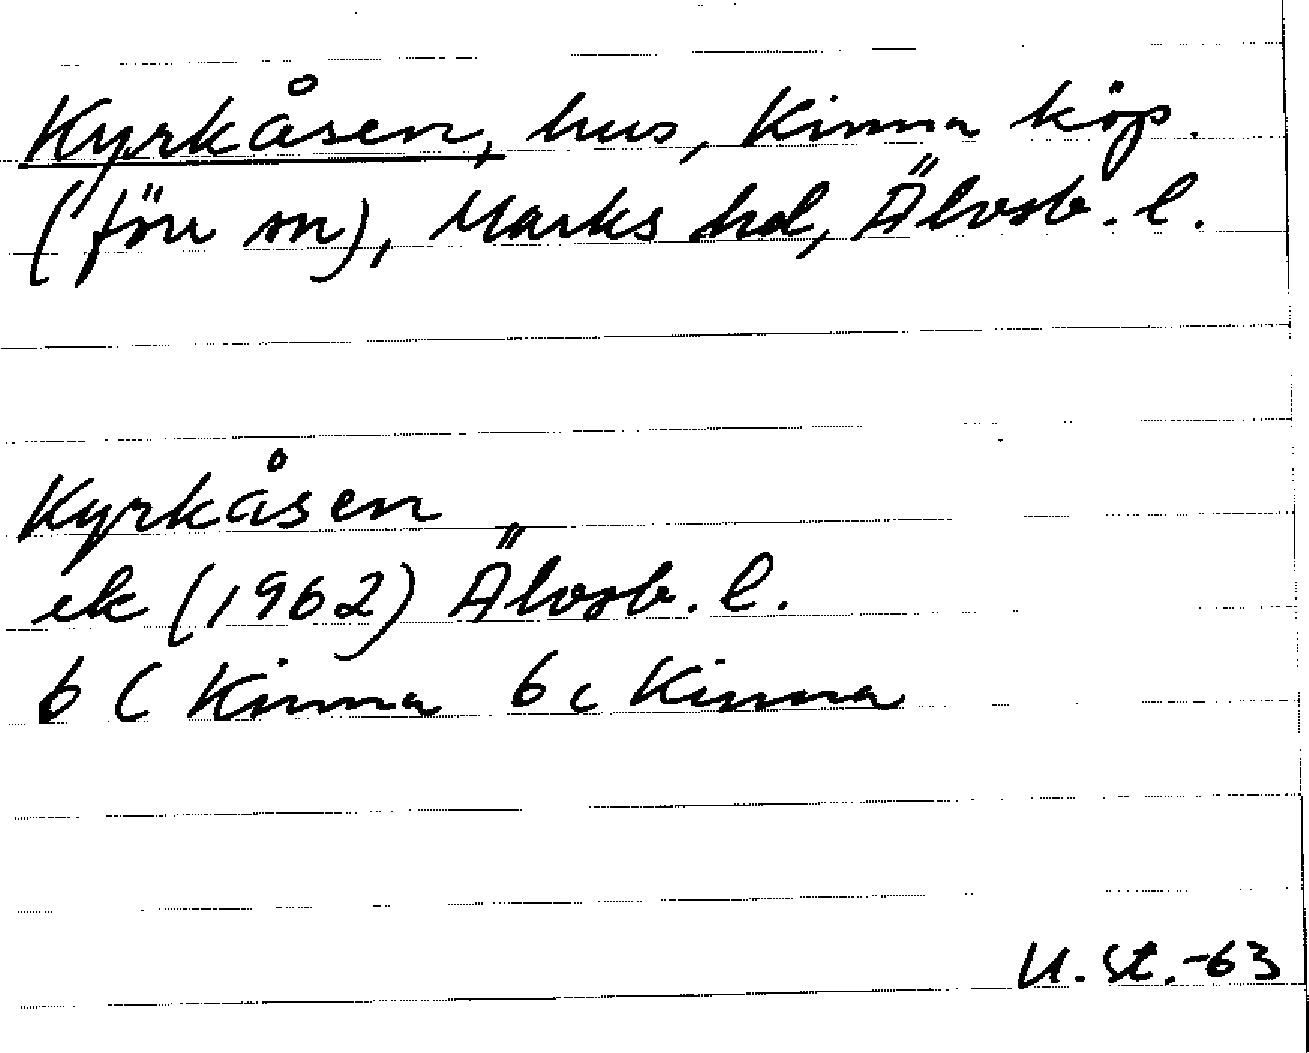 Kyrkåsen, hus, Kinna köp.
(förr sn), Marks hd, Älvsb. l.
Kyrkåsen
ek (1962) Älvsb. l.
6 C Kinna 6 c Kinna
U. St. -63